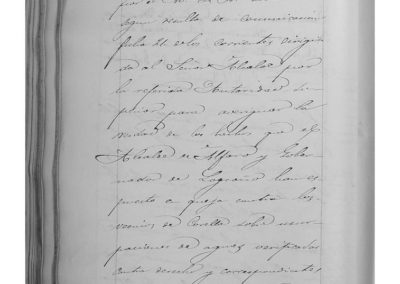 por el
que resulta de comunicacion
fecha 21 de los corrientes dirigi
da al Señor Alcalde por
la referida Autoridad su
perior para averiguar la
verdad de los hechos que el
Alcalde de Alfaro y Gober
nador de Logroño han es
puesto en queja contra los
vecinos de Corella sobre usur
paciones de aguas verificadas
contra derecho y correspondientes